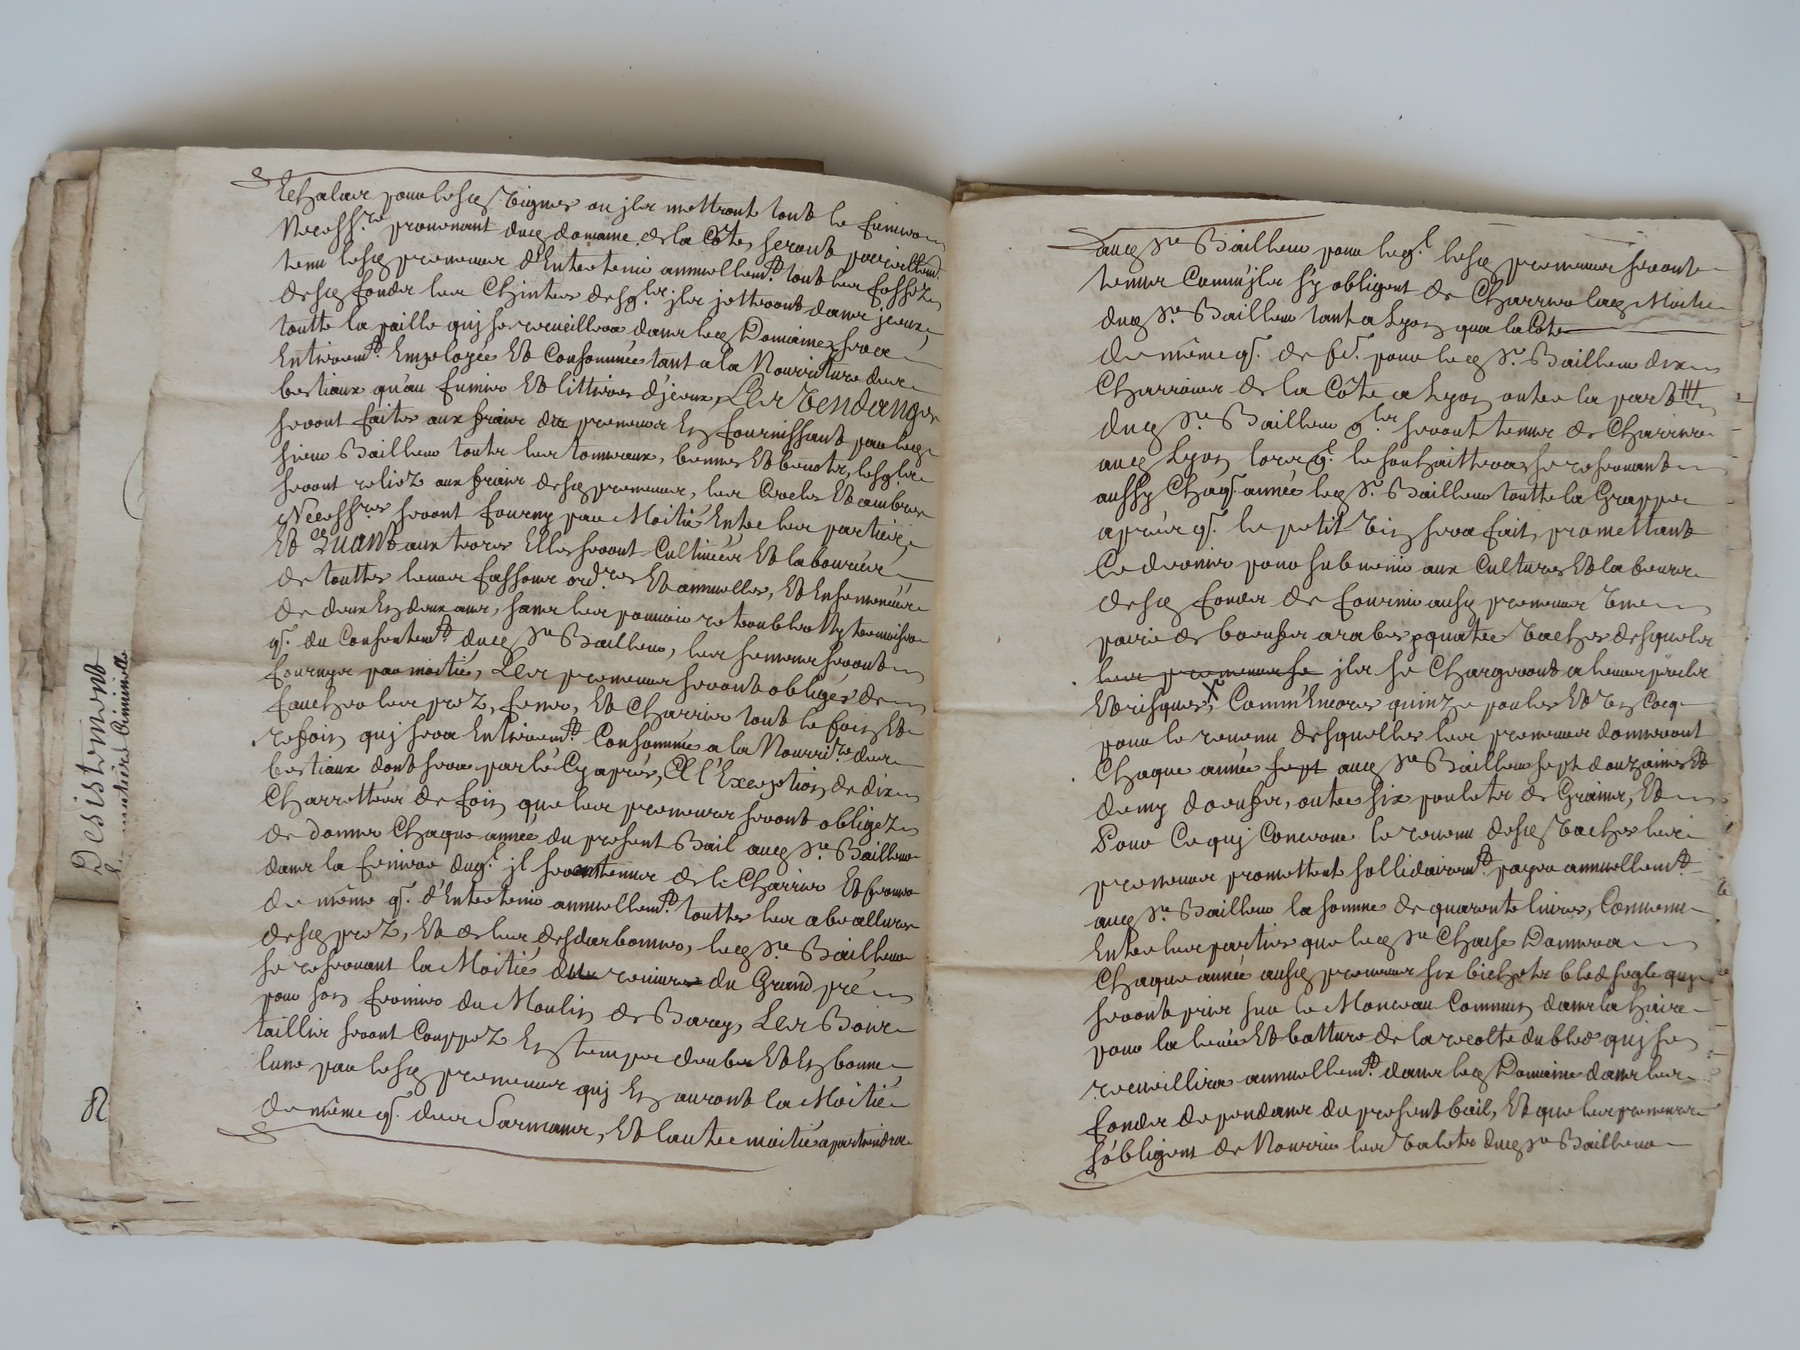 Echalas pour lesd. vignes ou jls mettront tout le fumier
Necessre provenant dud. domaine de la Côte, seront pareillemt
tenu lesd. preneurs d'Entretenir annuellemt tout les fossez
desd. fonds les Chintres desqls jls jetteront dans jceux,
toutte la paille quj se recueillera dans led. Domaine sera
Entieremt Employée Et Consommée tant a la Nourriture des
bestiaux qu'au fumier Et littieres d'jceux, Les Vendanges
seront faites aux fraix des preneurs En fournissant par led.
sieur Bailleur touts les tonneaux, bennes Et bennots, lesqls
seront reliez aux fraix desd. preneurs, les Cercles Et ambres
Necessres seront fourny par Moitié Entre les parties,
Et Quant aux terres Elles seront Cultivées Et labourées
de touttes leurs fassons ordres Et annuelles, Et Ensemencées
de deux En deux ans, sans les pouvoir retroubler Ny tremoiser
q. du Consentemt dud. Sr Bailleur, les semences seront
fournyes par moitié, Les preneurs seront obligés de
faucher les prez, fener, Et Charrier tout le foin Et
refoin quj sera Entieremt Consommé a la Nourrire des
bestiaux dont sera parlé Cy aprés, A l'Exception de dix
Charrettées de foin que les preneurs seront obligez
de donner Chaque année du present Bail aud. Sr Bailleur
dans la feniere duql jl seront tenus de le Charrier Et fermer
de même q. d'Entretenir annuellemt touttes les abeallures
desd. prez, Et de les desdarbonner, led. Sr Bailleur
se reservant la Moitié du revivre du Grand pré
pour son fermier du Moulin de Barey, Les Bois
taillis seront Couppez En temps deubs Et En bonne
lune par lesd. preneurs quj En auront la Moitié
de même q. des Sarmans, Et lautre moitié apartiendra
Desistement
mentaire Criminelle
aud. Sr Bailleur pour leql lesd. preneurs seront
tenus Comm'jls s'y obligent de Charrier lad. Moitié
dud. Sr Bailleur tant a Lyon qua la Côte
de même q. de fe. pour led. Sr Bailleur dix
Charrois de la Côte a Lyon outre la part
dud. Sr Bailleur qls seront tenus de Charrier
aud. Lyon lors q. le souhaittera, se reservant
aussy Chaq. année led. Sr Bailleur toutte la Grappe
aprés q. le petit vin sera fait, promettant
Ce dernier pour subvenir aux Cultures Et labeurs
desd. fonds de fournir ausd. preneurs une
paire de boeufs arables, quatre vaches desqueles
les preneurs se jls se Chargeront a leurs perils
Et risques, Comm'Encores quinze poules Et un Coq
pour le revenu desquelles les preneurs donneront
Chaque année sept aud. Sr Bailleur sept douzaines Et
demy doeufs, outre six poulets de Grains, Et
Pour Ce quj Concerne le revenu desd. vaches les
preneurs promettent sollidairemt payer annuellemt
aud. Sr Bailleur la somme de quarente livres, Convenu
Entre les parties que led. Sr Chaise Donnera
Chaque année ausd. preneurs six bichets bled segle quj
seront pris sur le Monceau Commun dans la haire
pour la levée Et batture de la recolte du bled quj se
recueillira annuellemt dans led. Domaine dans les
fonds dependans du present bail, Et que les preneurs
s'obligent de Nourrir les valets dud. Sr Bailleur